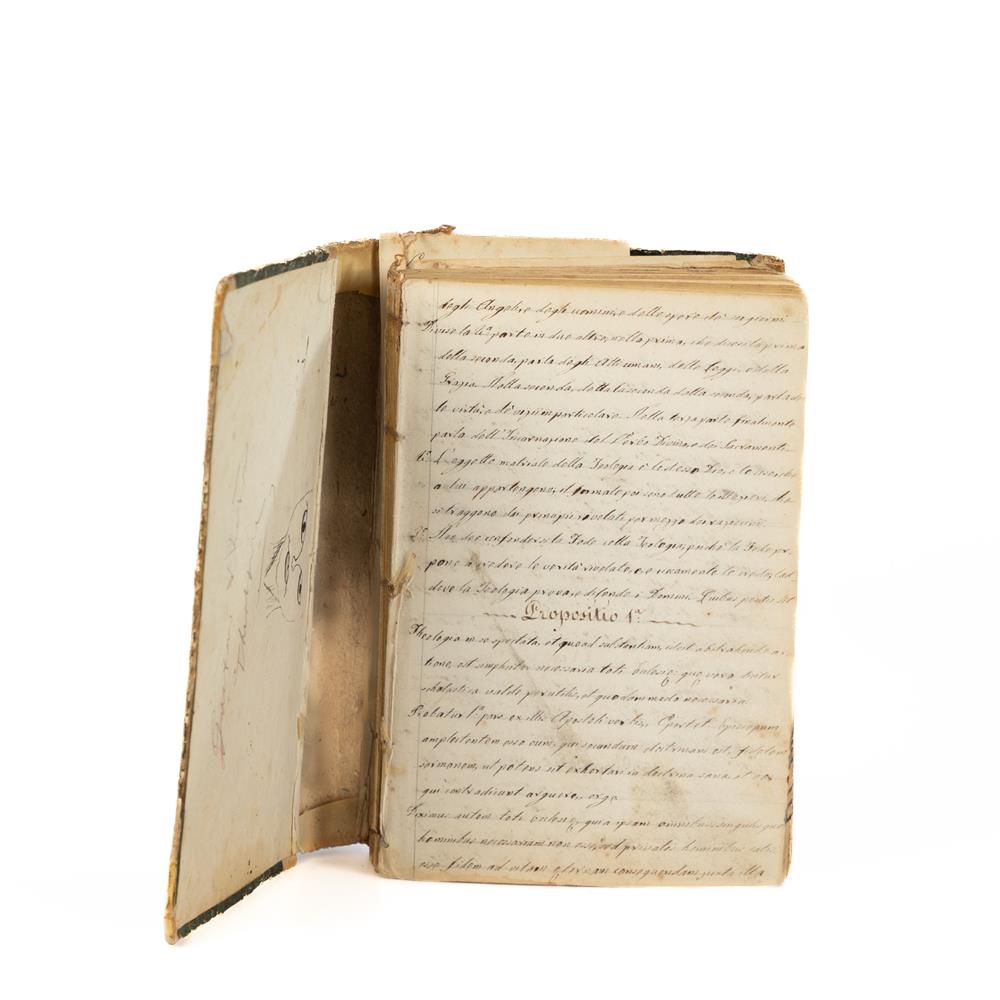 degli Angeli, e degli uomini, e delle opere dei sei giorni
Divise la 2ª parte in due altre, nella prima, che dicesi la prima
della seconda, parla degli Atti umani, delle Leggi, e della
Grazia. Nella seconda, detta la seconda della seconda, parla del
le virtù, e de' vizi in particolare. Nella terza parte finalmente
parla dell'Incarnazione del Verbo Divino, e dei Sacramenti
L'oggetto materiale della Teologia è lo stesso Dio, e le cose che
a lui appartengono, il formale poi sono tutte le che
si traggono dai principii rivelati per mezzo
Non dee confondersi la Fede colla Teologia, perchè la Fede pro
pone a credere le verità rivelate, e
deve la Teologia provare difende
Propositio 1ª
Theologia in se spectata, et quoad substantiam, idest abstrahendo a
tione, est simpliciter necessaria toti Ecclesiæ; quæ vero dicitur
scholastica valde perutilis, et quodammodo necessaria
Probatur 1ª pars ex illis Apostoli verbis, Oportet Episcopum
amplectentem esse eum, qui secundum doctrinam est, fidelem
sermonem, ut potens sit exhortari in doctrina sana, et eos
qui contradicunt arguere, ergo
Diximus autem toti Ecclesiæ, quia ipsam omnibus singulis que
hominibus necessariam non esse, sed privatis hominibus satis
esse fidem ad vitam æternam consequendam, juxta illa